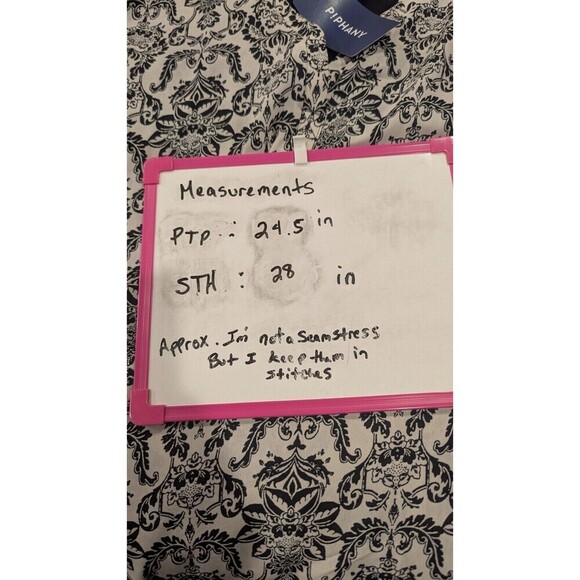 PIPHANY
Measurements
PTP : 24.5 in
STH : 28 in
Approx. I'm not a seamstress
But I keep them in
stitches